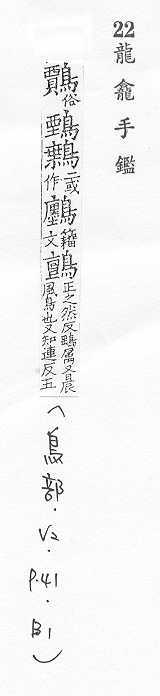 22 龍龕手鑑
俗 二或作 籀文 鸇 正之然反鷂属又晨風鳥也又知連反五
(鳥部.V2.P.41.B1)